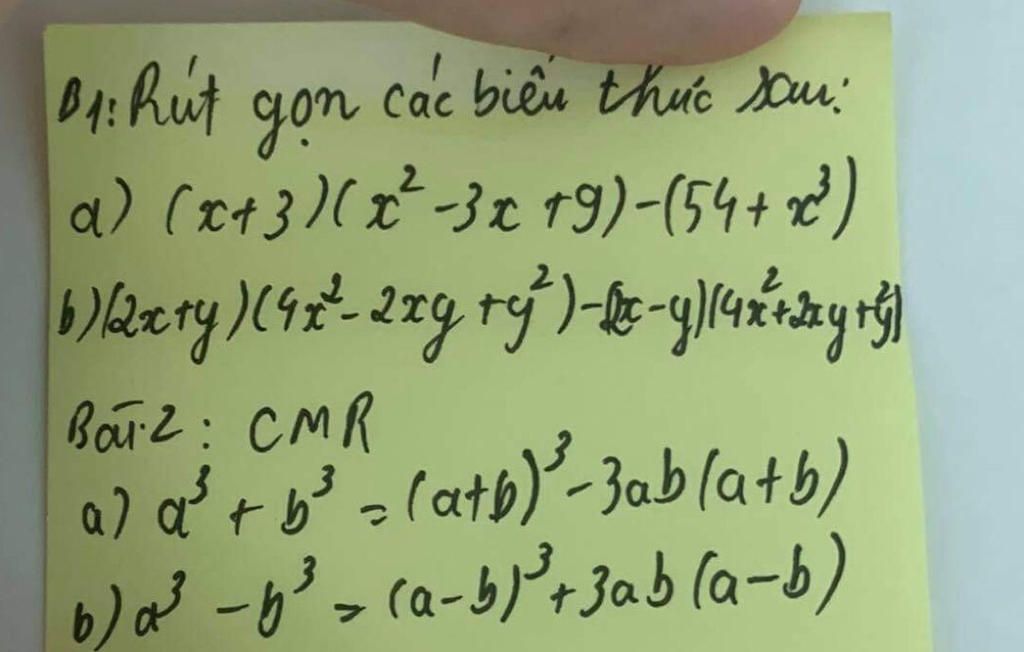 B1: Rút gọn các biểu thức sau:
a) (x+3)(x² -3x +9)-(54+x³)
b) (2x+y)(4x²-2xy+y²)-(2x-y)(4x²+2xy+y²)
Bài 2: CMR
a) a³ + b³ = (a+b)³-3ab(a+b)
b) a³ - b³ = (a-b)³+3ab(a-b)